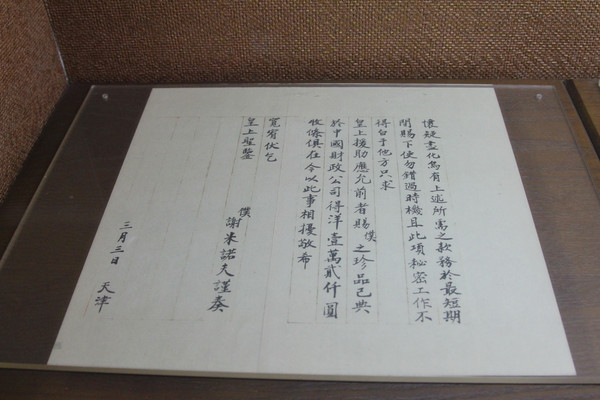 懷疑盡化烏有上述所需之款務於最短期
間賜下使勿錯過時機且此項秘密工作不
得白于他方只求
皇上援助應允前者賜僕之珍品已典
於中國財政公司得洋壹萬貳仟圓
收條俱在今以此事相擾敬希
寬宥伏乞
皇上聖鑒
僕謝米諾夫謹奏
三月三日 天津